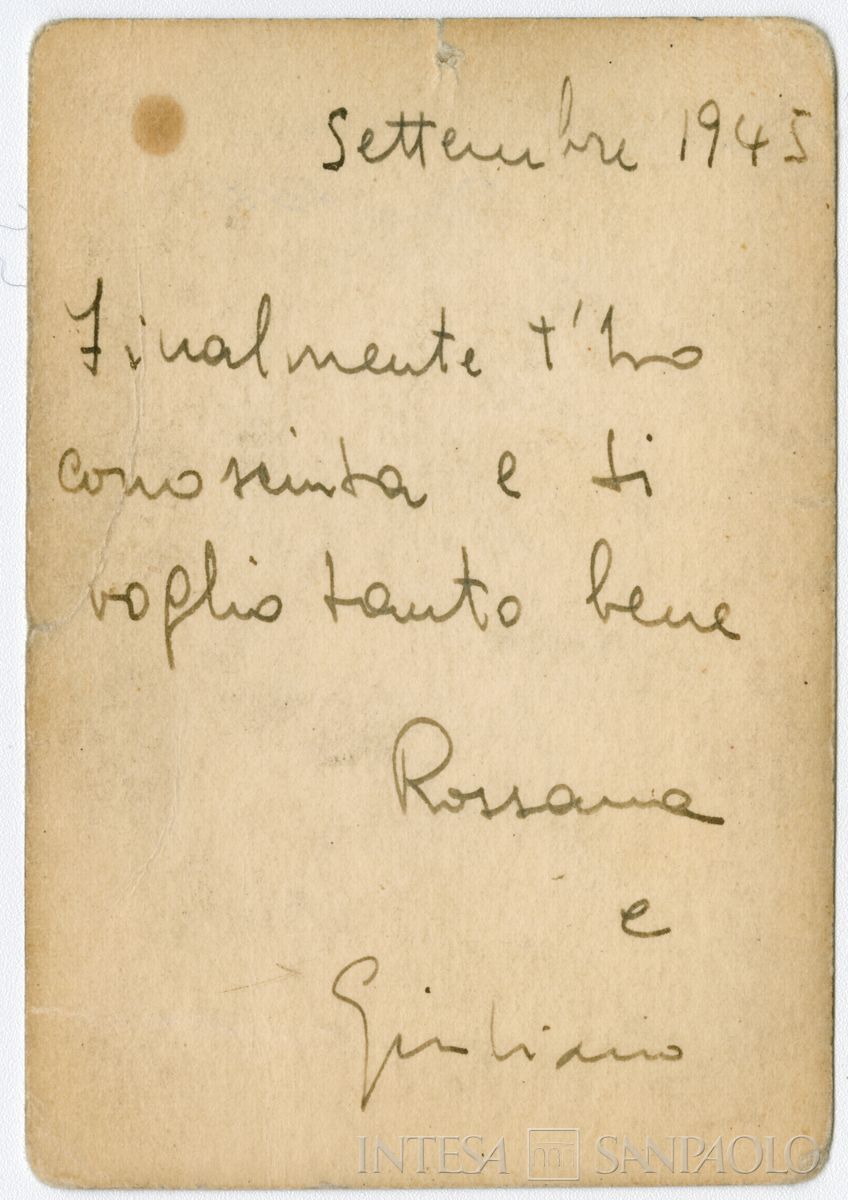 Settembre 1945
Finalmente t'ho
conosciuta e ti
voglio tanto bene
Rossana
e
Giuliano
INTESA SANPAOLO